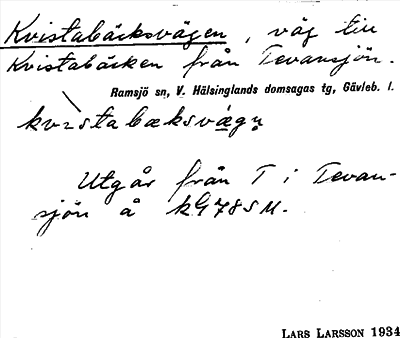 Kvistabäcksvägen, väg till
Kvistabäcken från Tevansjön.
Ramsjö sn, V. Hälsinglands domsagas tg, Gävleb. l.
Utgår från T i Tevan-
sjön å kG78SU.
LARS LARSSON 1934